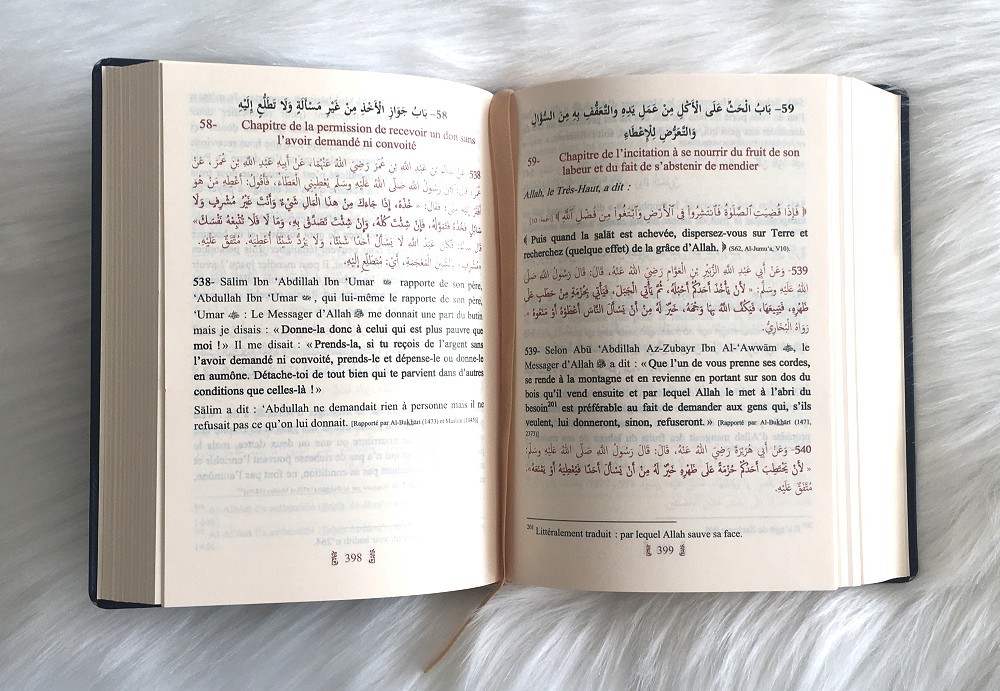 58– بَابُ جَوَازِ الْأَخْذِ مِنْ غَيْرِ مَسْأَلَةٍ وَلَا تَطَلُّعٍ إِلَيْهِ
58- Chapitre de la permission de recevoir un don sans
l’avoir demandé ni convoité
538 عَنْ سَالِمِ بْنِ عَبْدِ اللَّهِ بْنِ عُمَرَ، عَنْ أَبِيهِ عَبْدِ اللَّهِ بْنِ عُمَرَ، عَنْ
عُمَرَ رَسُولُ اللَّهِ صَلَّى اللَّهُ عَلَيْهِ وَسَلَّمَ يُعْطِينِي الْعَطَاءَ، فَأَقُولُ: أَعْطِهِ مَنْ هُوَ
أَفْقَرُ « خُذْهُ، إِذَا جَاءَكَ مِنْ هَذَا الْمَالِ شَيْءٌ وَأَنْتَ غَيْرُ مُشْرِفٍ وَلَا
سَائِلٍ فَخُذْهُ فَتَمَوَّلْهُ، فَإِنْ شِئْتَ كُلْهُ، وَإِنْ شِئْتَ تَصَدَّقْ بِهِ، وَمَا لَا فَلَا تُتْبِعْهُ نَفْسَكَ»
قَالَ سَالِمٌ: فَكَانَ عَبْدُ اللَّهِ لَا يَسْأَلُ أَحَدًا شَيْئًا، وَلَا يَرُدُّ شَيْئًا أُعْطِيَهُ. مُتَّفَقٌ عَلَيْهِ.
«مُشْرِفٍ» بِالشِّينِ الْمُعْجَمَةِ، أَيْ: مُتَطَلِّعٍ إِلَيْهِ.
538- Sālim Ibn ‘Abdillah Ibn ‘Umar rapporte de son père,
‘Abdullah Ibn ‘Umar , qui lui-même le rapporte de son père,
‘Umar : Le Messager d’Allah ﷺ me donnait une part du butin
mais je disais : « Donne-la donc à celui qui est plus pauvre que
moi ! » Il me disait : « Prends-la, si tu reçois de l’argent sans
l’avoir demandé ni convoité, prends-le et dépense-le ou donne-le
en aumône. Détache-toi de tout bien qui te parvient dans d’autres
conditions que celles-là ! »
Sālim a dit : ‘Abdullah ne demandait rien à personne mais il ne
refusait pas ce qu’on lui donnait. [Rapporté par Al-Bukhāri (1473) et Muslim (1045)]
398
59– بَابُ الْحَثِّ عَلَى الْأَكْلِ مِنْ عَمَلِ يَدِهِ والتَّعَفُّفِ بِهِ مِنَ السُّؤَالِ
وَالتَّعَرُّضِ لِلْإِعْطَاءِ
59- Chapitre de l’incitation à se nourrir du fruit de son
labeur et du fait de s’abstenir de mendier
Allah, le Trés-Haut, a dit :
﴿ فَإِذَا قُضِيَتِ ٱلصَّلَوٰةُ فَٱنتَشِرُوا۟ فِى ٱلْأَرْضِ وَٱبْتَغُوا۟ مِن فَضْلِ ٱللَّهِ ﴾
﴾ Puis quand la salāt est achevée, dispersez-vous sur Terre et
recherchez (quelque effet) de la grâce d’Allah. ﴿ (S62, Al-Jumu’a, V10).
539– وَعَنْ أَبِي عَبْدِ اللَّهِ الزُّبَيْرِ بْنِ الْعَوَّامِ رَضِيَ اللَّهُ عَنْهُ، قَالَ: قَالَ رَسُولُ اللَّهِ صَلَّى
اللَّهُ عَلَيْهِ وَسَلَّمَ: « لَأَنْ يَأْخُذَ أَحَدُكُمْ أَحْبُلَهُ، ثُمَّ يَأْتِيَ الْجَبَلَ، فَيَأْتِيَ بِحُزْمَةٍ مِنْ حَطَبٍ عَلَى
ظَهْرِهِ، فَيَبِيعَهَا، فَيَكُفَّ اللَّهُ بِهَا وَجْهَهُ، خَيْرٌ لَهُ مِنْ أَنْ يَسْأَلَ النَّاسَ أَعْطَوْهُ أَوْ مَنَعُوهُ ».
رَوَاهُ الْبُخَارِيُّ.
539- Selon Abū ‘Abdillah Az-Zubayr Ibn Al-‘Awwām , le
Messager d’Allah ﷺ a dit : « Que l’un de vous prenne ses cordes,
se rende à la montagne et en revienne en portant sur son dos du
bois qu’il vend ensuite et par lequel Allah le met à l’abri du
besoin201 est préférable au fait de demander aux gens qui, s’ils
veulent, lui donneront, sinon, refuseront. » [Rapporté par Al-Bukhāri (1471,
2373)]
540– وَعَنْ أَبِي هُرَيْرَةَ رَضِيَ اللَّهُ عَنْهُ، قَالَ: قَالَ رَسُولُ اللَّهِ صَلَّى اللَّهُ عَلَيْهِ وَسَلَّمَ:
« لَأَنْ يَحْتَطِبَ أَحَدُكُمْ حُزْمَةً عَلَى ظَهْرِهِ خَيْرٌ لَهُ مِنْ أَنْ يَسْأَلَ أَحَدًا فَيُعْطِيَهُ أَوْ يَمْنَعَهُ».
مُتَّفَقٌ عَلَيْهِ.
201 Littéralement traduit : par lequel Allah sauve sa face.
399